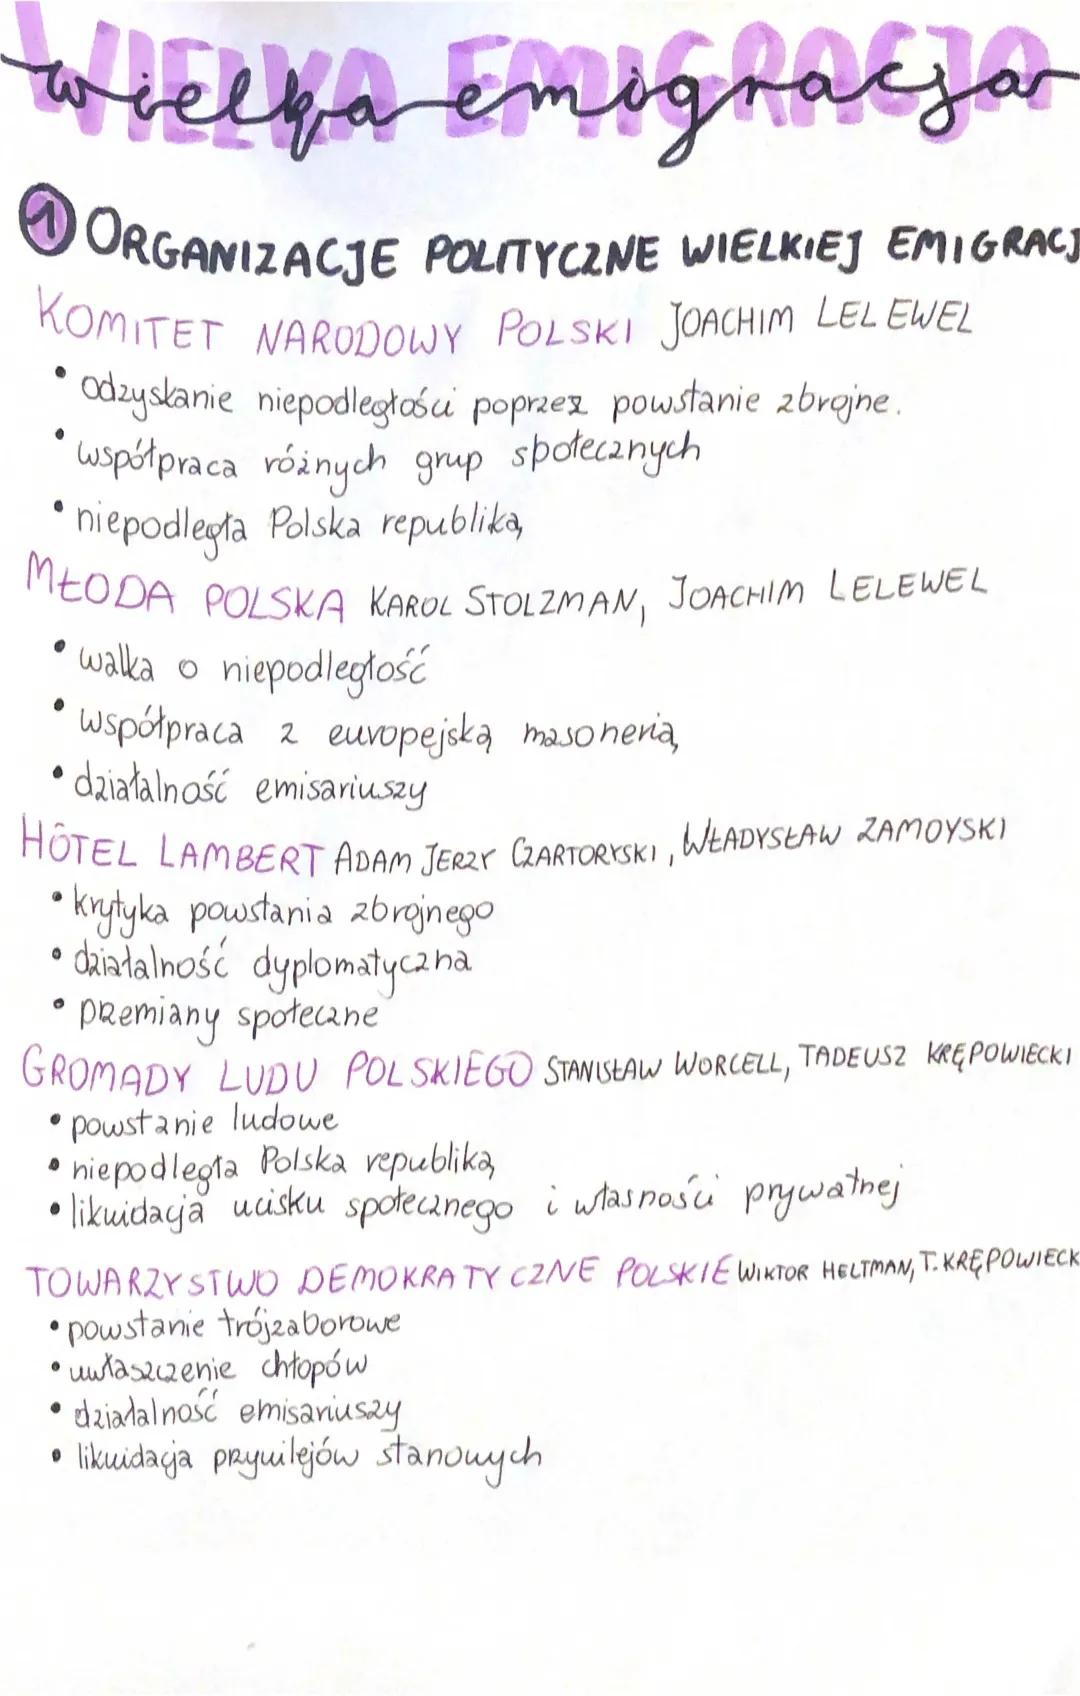 WIELKA EMIGRACJA
wielka emigracja
1 ORGANIZACJE POLITYCZNE WIELKIEJ EMIGRACJ
KOMITET NARODOWY POLSKI JOACHIM LELEWEL
• odzyskanie niepodległości poprzez powstanie zbrojne.
• współpraca różnych grup społecznych
• niepodległa Polska republiką
MŁODA POLSKA KAROL STOLZMAN, JOACHIM LELEWEL
• walka o niepodległość
• współpraca z europejską masonerią
• działalność emisariuszy
HÔTEL LAMBERT ADAM JERZY CZARTORYSKI, WŁADYSŁAW ZAMOYSKI
• krytyka powstania zbrojnego
• działalność dyplomatyczna
• przemiany społeczne
GROMADY LUDU POLSKIEGO STANISŁAW WORCELL, TADEUSZ KRĘPOWIECKI
• powstanie ludowe
• niepodległa Polska republiką
• likwidacja ucisku społecznego i własności prywatnej
TOWARZYSTWO DEMOKRATYCZNE POLSKIE WIKTOR HELTMAN, T. KRĘPOWIECK
• powstanie trójzaborowe
• uwłaszczenie chłopów
• działalność emisariuszy
• likwidacja przywilejów stanowych